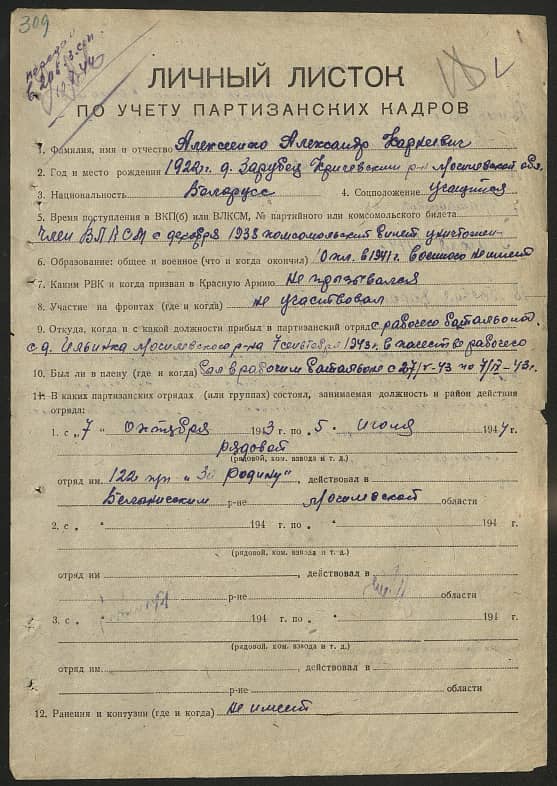 309
передан
ЛИЧНЫЙ ЛИСТОК
ПО УЧЕТУ ПАРТИЗАНСКИХ КАДРОВ
1. Фамилия, имя и отчество Алексеенко Александр
2. Год и место рождения 1922 г. д. Зарубец Кричевским р-н Могилевской обл.
3. Национальность Белорусс 4. Соцположение учащийся
5. Время поступления в ВКП(б) или ВЛКСМ, № партийного или комсомольского билета
член ВЛКСМ с декабря 1938 комсомольский билет уничтожен
6. Образование: общее и военное (что и когда окончил) 10 кл. в 1941 г. военного не имеет
7. Каким РВК и когда призван в Красную Армию не призывался
8. Участие на фронтах (где и когда) не участвовал
9. Откуда, когда и с какой должности прибыл в партизанский отряд с рабочего батальона
с д. Ильинка Могилевского р-на 7 сентября 1943 г. в качестве рабочего
10. Был ли в плену (где и когда) был в рабочим батальоне с
11. В каких партизанских отрядах (или группах) состоял, занимаемая должность и район действия
отряда:
1. с „7 " октября 1943 г. по „5 " июля 1944 г.
рядовой
(рядовой, ком. взвода и т. д.)
отряд им. 122 пп „За Родину", действовал в
Белыничским р-не Могилевской области
2. с „ " 194 г. по „ " 194 г.
(рядовой, ком. взвода и т. д.)
отряд им , действовал в
р-не области
3. с „ " 194 г. по „ " 194 г.
(рядовой, ком. взвода и т. д.)
отряд им. , действовал в
р-не области
12. Ранения и контузии (где и когда) не имеет